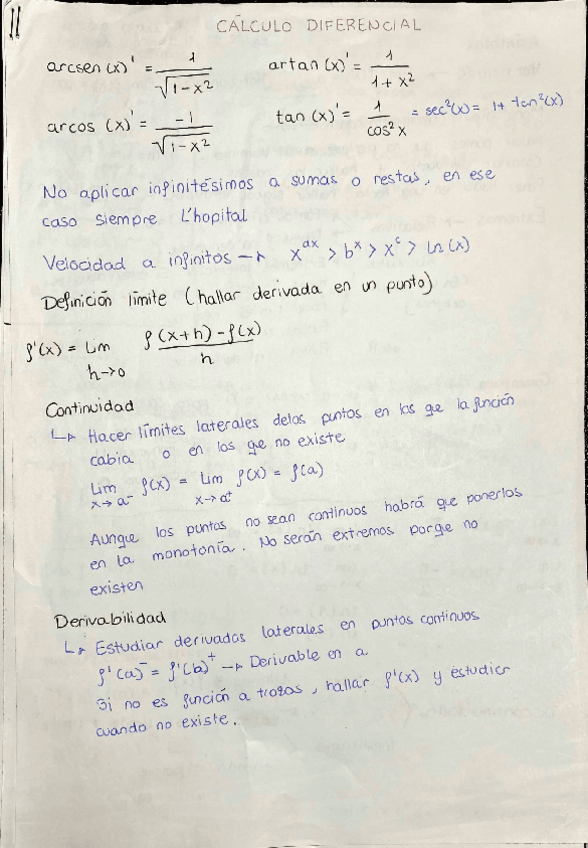 11
CÁLCULO DIFERENCIAL
arcsen (x)' = 1 / √(1-x²)    artan (x)' = 1 / (1 + x²)
arcos (x)' = -1 / √(1-x²)    tan (x)' = 1 / cos²x = sec²(x) = 1 + tan²(x)
No aplicar infinitésimos a sumas o restas, en ese
caso siempre L'hopital
Velocidad a infinitos → x^dx > b^x > x^c > ln(x)
Definición límite (hallar derivada en un punto)
f'(x) = lim h→0 (f(x+h) - f(x)) / h
Continuidad
↳ Hacer límites laterales delos puntos en los qe la función
cabia o en los qe no existe
lim x→a⁻ f(x) = lim x→a⁺ f(x) = f(a)
Aunqe los puntos no sean continuos habrá que ponerlos
en la monotonía. No serán extremos porqe no
existen
Derivabilidad
↳ Estudiar derivadas laterales en puntos continuos
f'(a)⁻ = f'(b)⁺ → Derivable en a
Si no es función a trozos, hallar f'(x) y estudiar
cuando no existe.